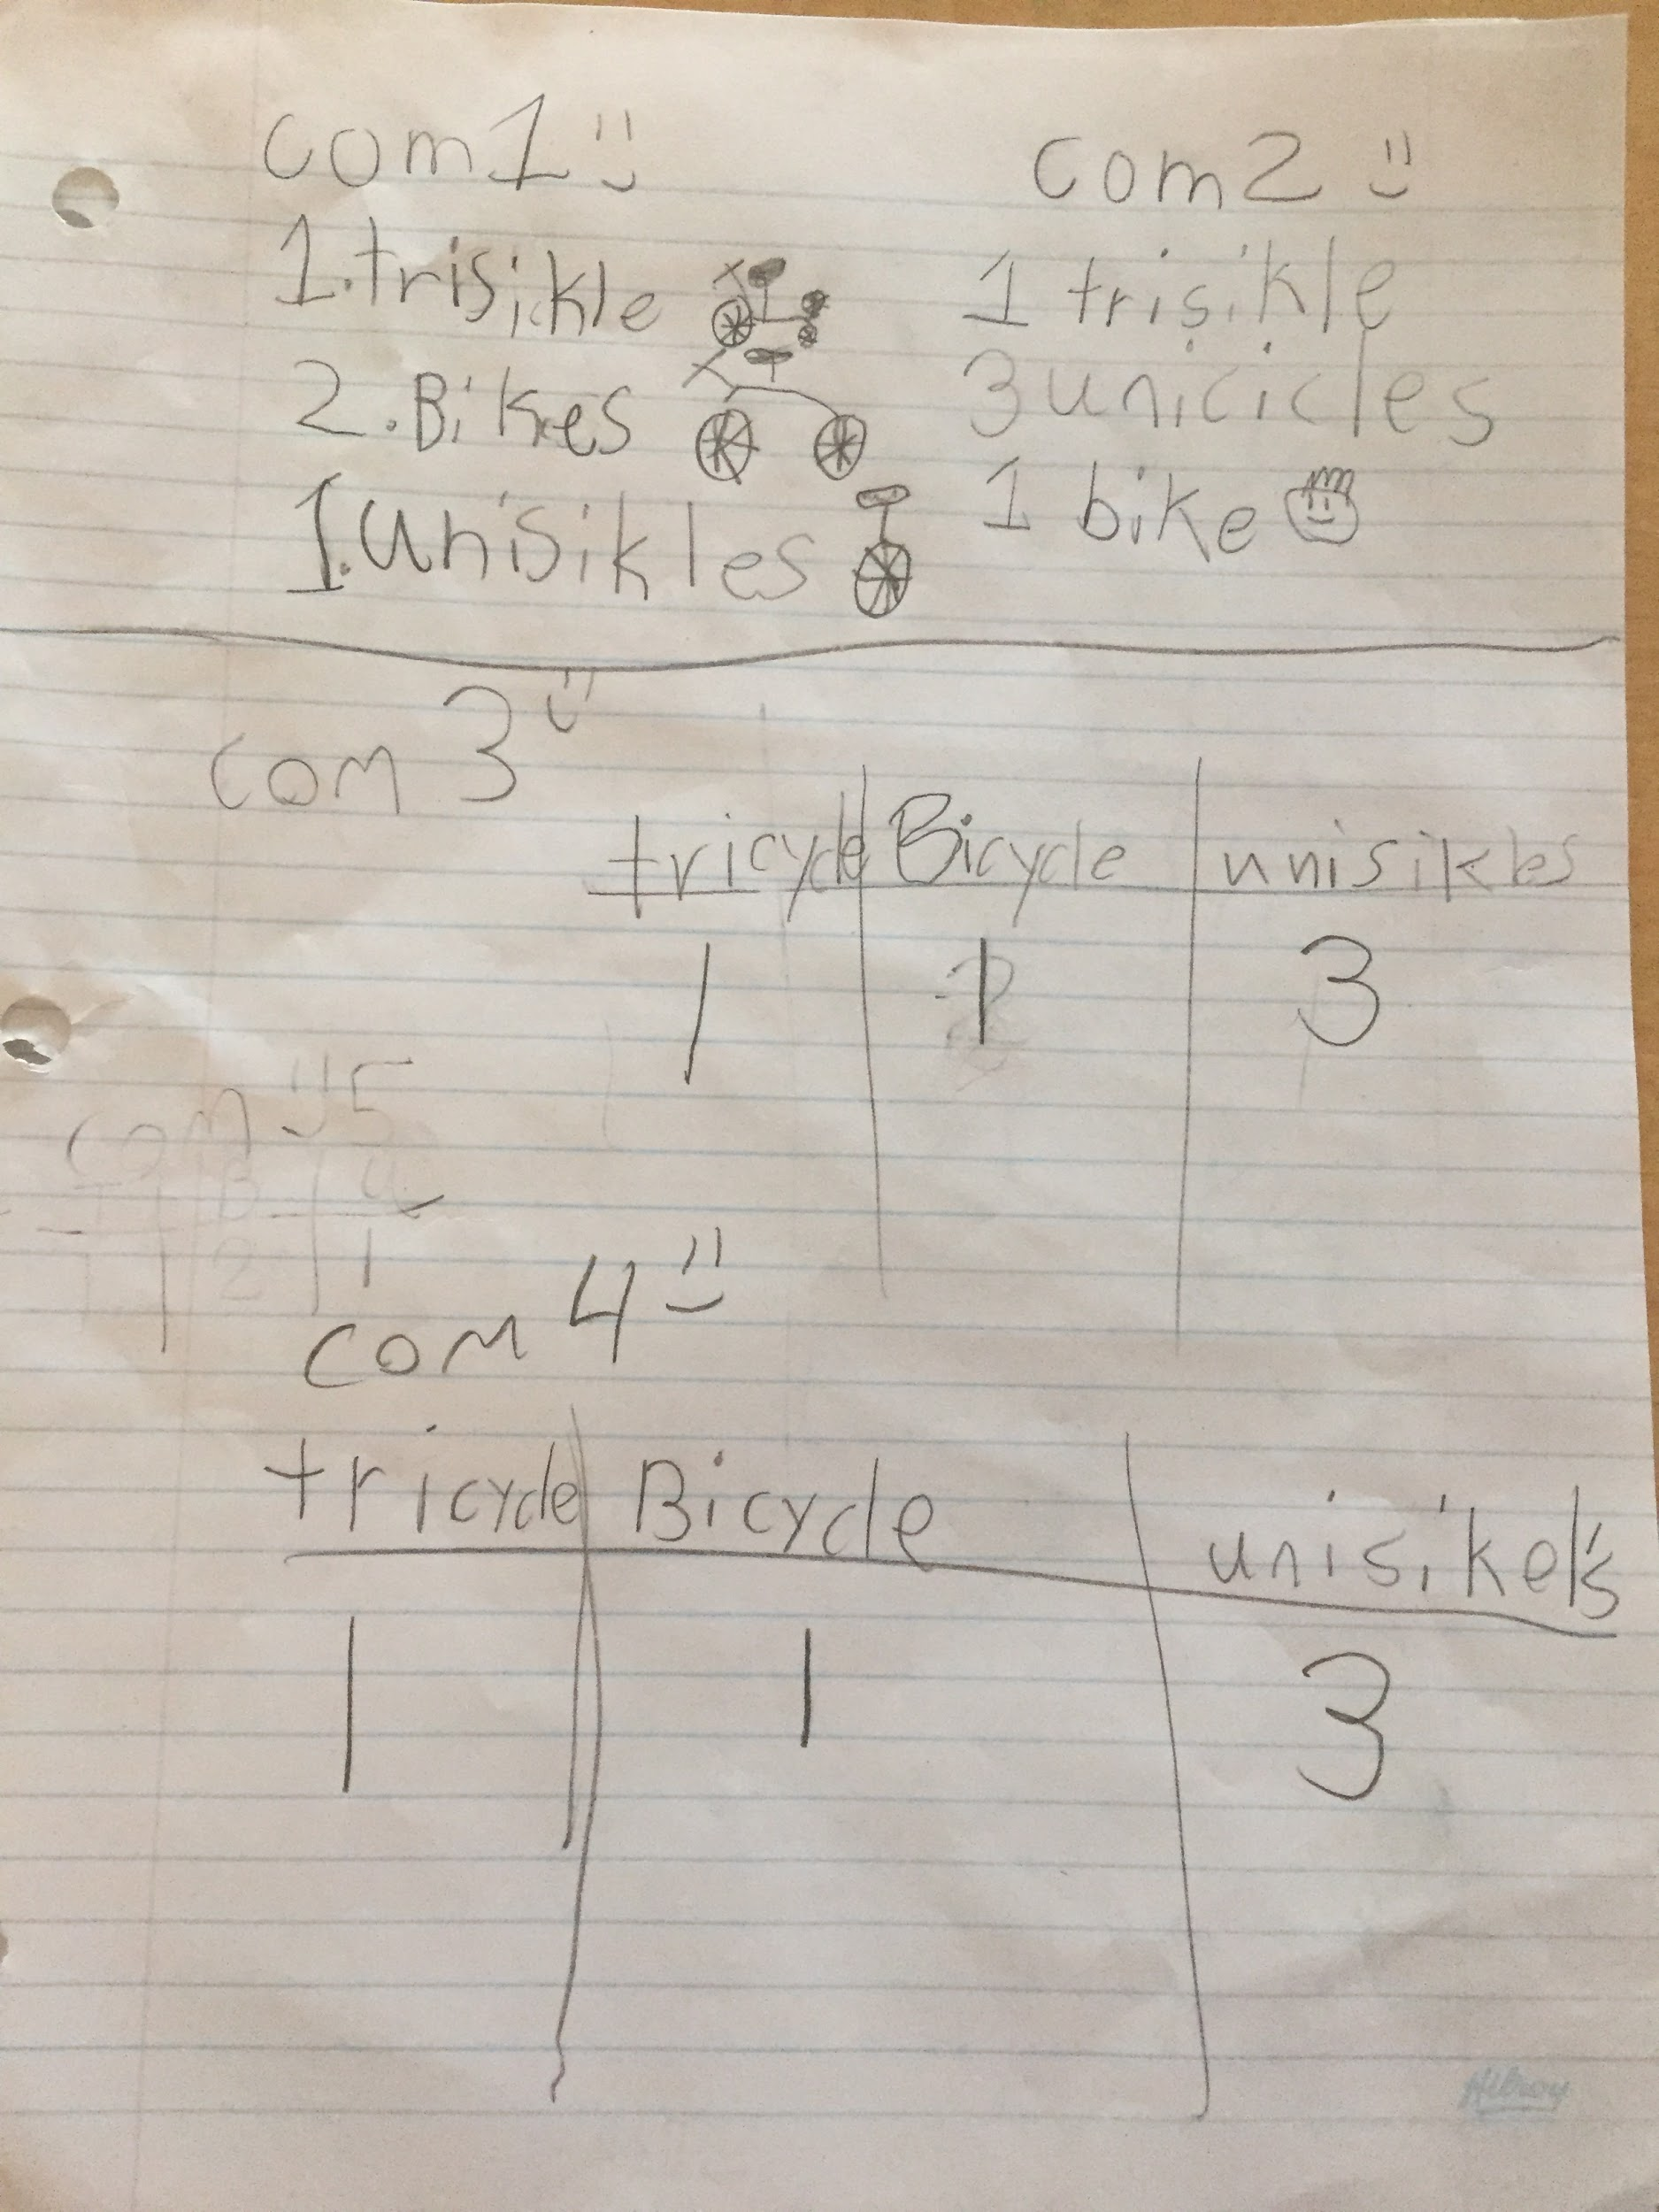 com 1
1. trisikle
2. Bikes
1. unisikles
com 2
1 trisikle
3 unicicles
1 bike
com 3
tricycle Bicycle unisikles
1 1 3
com 5
T B U
1 2 1
com 4
tricycle Bicycle unisikel's
1 1 3
Hilroy